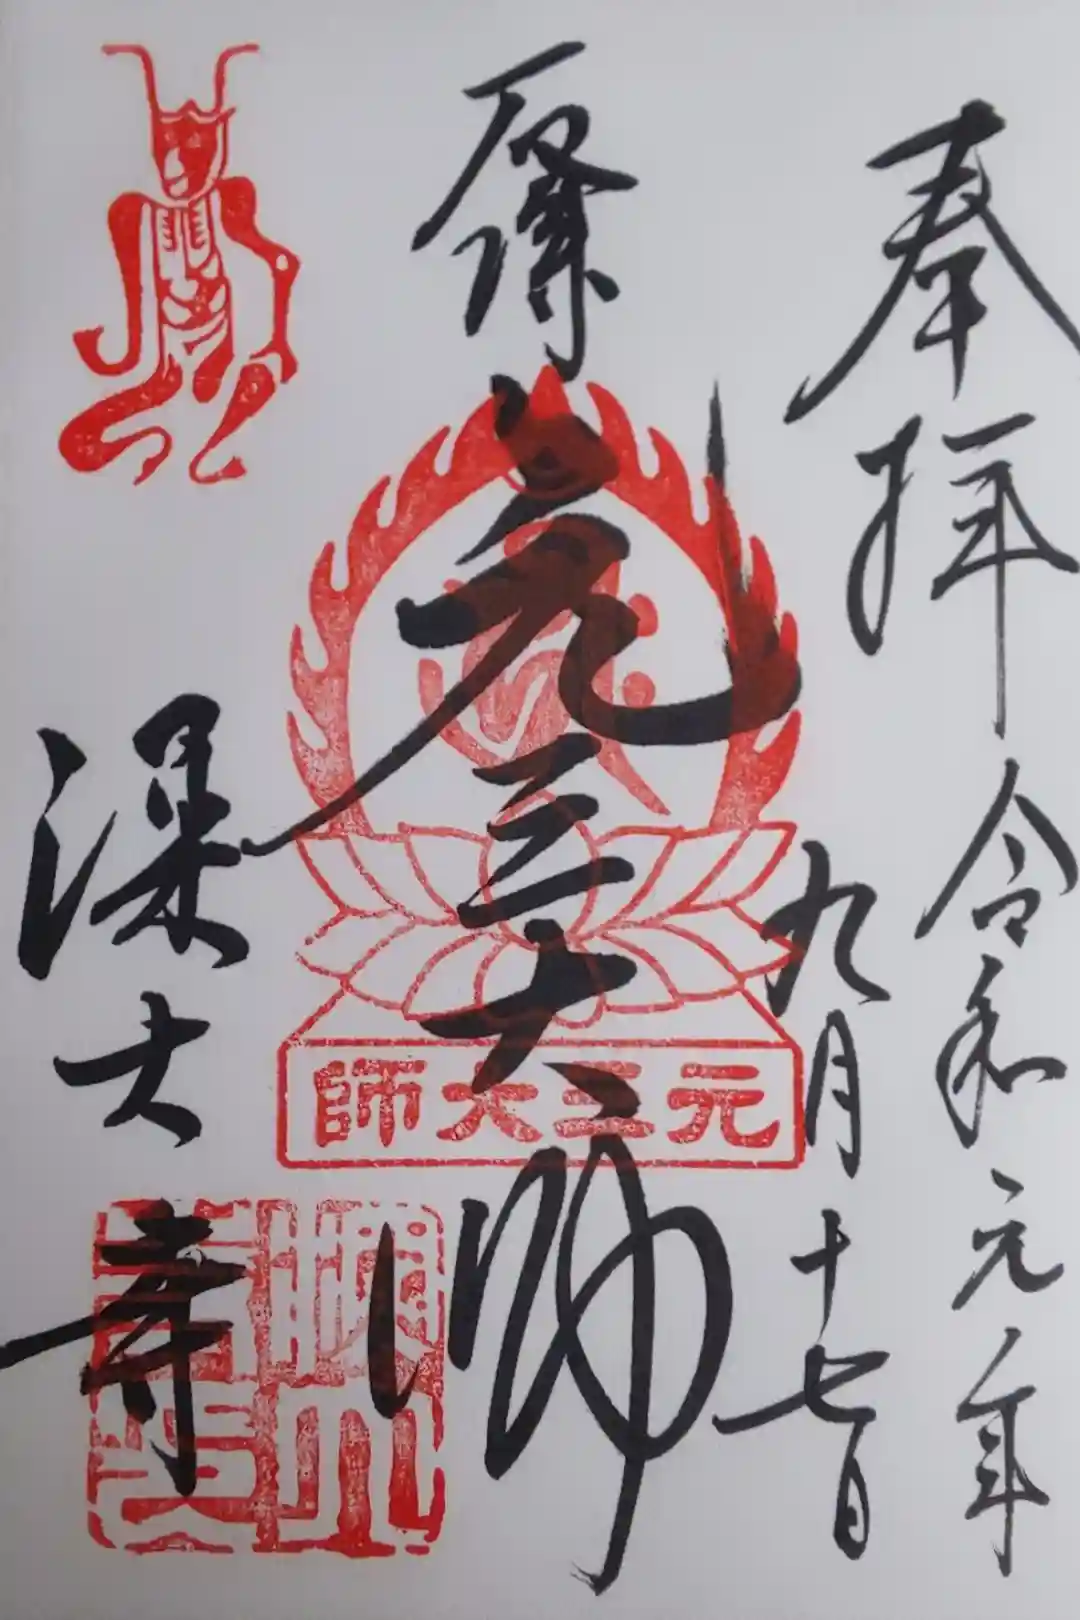 奉拝
令和元年
九月十七日
厄除
元三大師
元三大師
深大寺